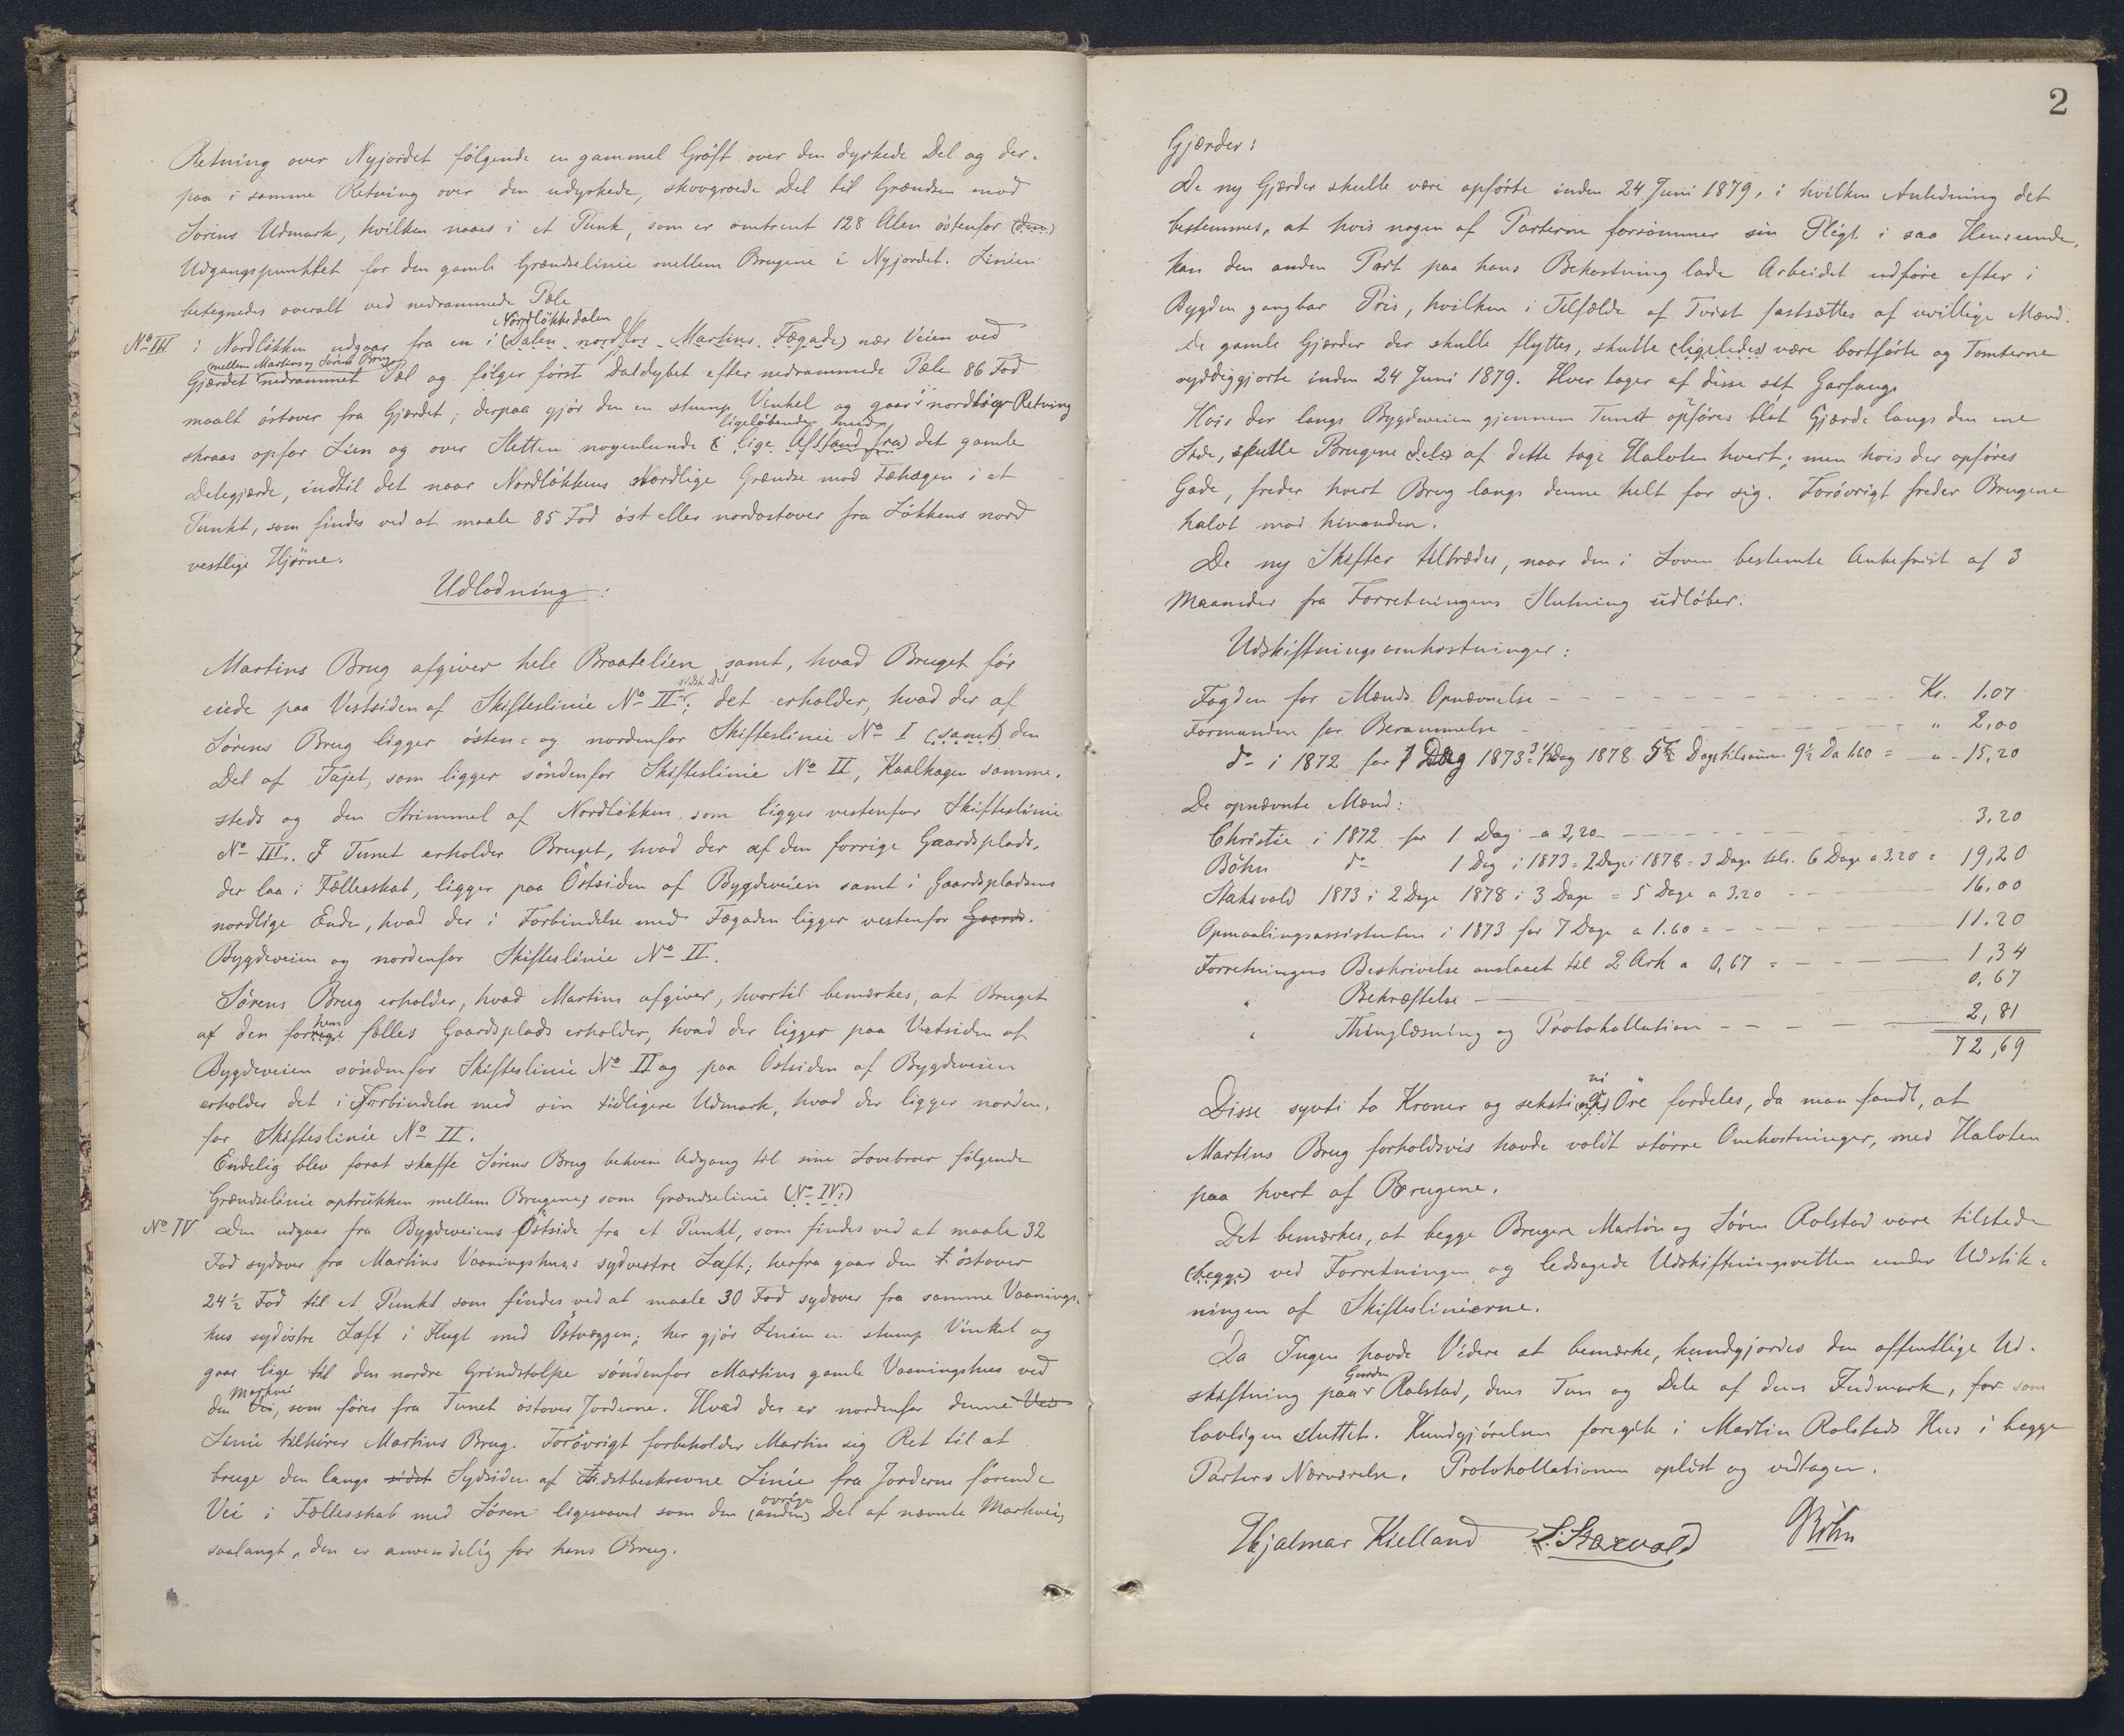 Retning over Nyjordet følgende en gammel Grøft over den dyrkede Del og der-
paa i samme Retning over den udyrkede, skovgroede Del til Grændsen mod
Sørens Udmark, hvilken naaes i et Punk, som er omtrent 128 Alen östenfor (den)
Udgangspunktet for den gamle Grændselinie mellem Brugene i Nyjordet. Linien
betegnedes overalt ved nedrammede Pæle
Nordløkkedalen
No III i Nordløkken udgaar fra en i (Dalen nordfor Martins Fægade) nær Veien ved
mellem Martins og Sörens Brug
Gjærdet nedrammet Pæl og følger først Daldybet efter nedrammede Pæle 86 Fod
maalt östover fra Gjærdet; derpaa gjør den en stump Vinkel og gaar i nordlig Retning
ligeløbende med
skraas opfor Lien og over Sletten nogenlunde (i lige Afstand fra) det gamle
Delegjerde, indtil det naar Nordløkkens nordlige Grændse mod Fæhagen i et
Punkt, som findes ved at maale 85 Fod öst eller nordostover fra Løkkens nord
vestlige Hjørne.
Udlodning:
Martins Brug afgiver hele Braatelien samt, hvad Bruget før
sidste Del
eiede paa Vestsiden af Skifteslinie No II; det erholder, hvad der af
Sørens Brug ligger østen- og nordenfor Skifteslinie No I (samt) den
Del af Tajet, som ligger söndenfor Skifteslinie No II, Kaalhagen samme-
steds og den Strimmel af Nordløkken, som ligger vestenfor Skifteslinie
No III. I Tunet erholder Bruget, hvad der af den forrige Gaardsplads,
der laa i Fællesskab, ligger paa Östsiden af Bygdeveien samt i Gaardspladsens
nordlige Ende, hvad der i Forbindelse med Fægaden ligger vestenfor Gaards-
Bygdeveien og nordenfor Skifteslinie No II.
Sørens Brug erholder, hvad Martins afgiver, hvortil bemærkes, at Bruget
af den forrige fælles Gaardsplads erholder, hvad der ligger paa Vestsiden af
Bygdeveien søndenfor Skifteslinie No II og paa Östsiden af Bygdeveien
erholder det i Forbindelse med sin tidligere Udmark, hvad der ligger norden-
for Skifteslinie No II.
Endelig blev forat skaffe Sørens Brug bekvem Adgang til sine Lovebroer følgende
Grændselinie optrukken mellem Brugene, som Grændselinie (No IV:)
No IV Den udgaar fra Bygdeveiens Östside fra et Punkt, som findes ved at maale 32
Fod sydover fra Martins Vaaningshuses sydvestre Laft; herfra gaar den östover
24½ Fod til et Punkt som findes ved at maale 30 Fod sydover fra samme Vaanings-
hus sydöstre Laft i Flugt med Östvæggen; her gjør Linien en stump Vinkel og
gaar lige til den nordre Grindstolpe söndenfor Martins gamle Vaaningshus ved
Markvei
den Vei, som fører fra Tunet östover Jorderne. Hvad der er nordenfor denne Vei
Linie tilhører Martins Brug. Forövrigt forbeholder Martin sig Ret til at
bruge den langs sidst Sydsiden af sidstbeskrevne Linie fra Jorderne førende
övrige
Vei i Fællesskab med Søren ligesaavel som den (anden) Del af nævnte Markvei,
saalangt, den er anvendelig for hans Brug.
2
Gjærder:
De ny Gjærder skulle være opførte inden 24 Juni 1879, i hvilken Anledning det
bestemmes, at hvis nogen af Parterne forsømmer sin Pligt i saa Henseende,
kan den anden Part paa hans Bekostning lade Arbeidet udføre efter i
Bygden gangbar Pris, hvilken i Tilfælde af Tvist fastsættes af uvillige Mænd.
De gamle Gjærder der skulle flyttes, skulle (ligeledes) være bortførte og Tomterne
ryddiggjorte inden 24 Juni 1879. Hver tager af disse sit Garfange
Hvis der langs Bygdeveien gjennem Tunet opføres blot Gjærde langs den ene
Side, skulle Brugene (dele) af dette tage Halvten hvert; men hvis der opføres
Gade, freder hvert Brug langs denne helt for sig. Forövrigt freder Brugene
halvt mod hinanden.
De ny Skifter tiltrædes, naar den i Loven bestemte Ankefrist af 3
Maaneder fra Forretningens Slutning udløber.
Udskiftningsomkostninger:
Fogden for Mænds Opnævnelse - Kr. 1.07
Formanden for Berammelse - " 2,00
do i 1872 for 1 Dag 1873= 3½ Dag 1878 5 Dage tilsammen 9½ Da 1.60 = " 15,20
De opnævnte Mænd:
Christie i 1872 for 1 Dag a 3,20 - 3,20
Böhn do 1 Dag i 1873= 2 Dage i 1878= 3 Dage tils. 6 Dage a 3,20 = 19,20
Staksvold 1873 i 2 Dage 1878 i 3 Dage = 5 Dage a 3,20 - 16,00
Opmaalingsassistenten i 1873 for 7 Dage a 1.60 = - 11.20
Forretningens Beskrivelse anslaaet til 2 Ark a 0,67 = - 1,34
" Bekræftelse - 0,67
" Thinglæsning og Protokollation - 2,81
72,69
ni
Disse sytti to Kroner og seksti Öre fordeles, da man fandt, at
Martins Brug forholdsvis havde voldt större Omkostninger, med Halvten
paa hvert af Brugene.
Det bemærkes, at begge Brugere Martin og Søren Rolstad vare tilstede
(begge) ved Forretningen og ledsagede Udskiftningsretten under Udstik-
ningen af Skifteslinierne.
Da Ingen havde Videre at bemærke, kundgjordes den offentlige Ud-
Gaarden
skiftning paa Rolstad, dens Tun og Dele af dens Indmark, for som
lovligen sluttet. Kundgjørelsen foregik i Martin Rolstads Hus i begge
Parters Nærværelse. Protokollationen oplæst og vedtagen.
Hjalmar Kielland S. Staxvold Böhn